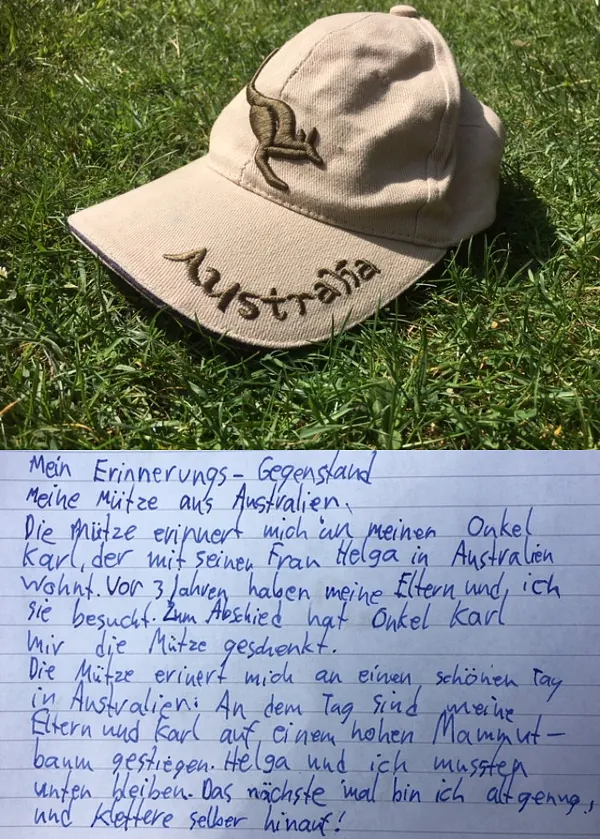 Australia
Mein Erinnerungs-Gegenstand
Meine Mütze aus Australien.
Die Mütze erinnert mich an meinen Onkel
Karl, der mit seiner Frau Helga in Australien
wohnt. Vor 3 Jahren haben meine Eltern und ich
sie besucht. Zum Abschied hat Onkel Karl
mir die Mütze geschenkt.
Die Mütze erinert mich an einen schönen Tag
in Australien: An dem Tag sind meine
Eltern und Karl auf einem hohen Mammut-
baum gestiegen. Helga und ich mussten
unten bleiben. Das nächste mal bin ich alt genung,
und klettere selber hinauf!